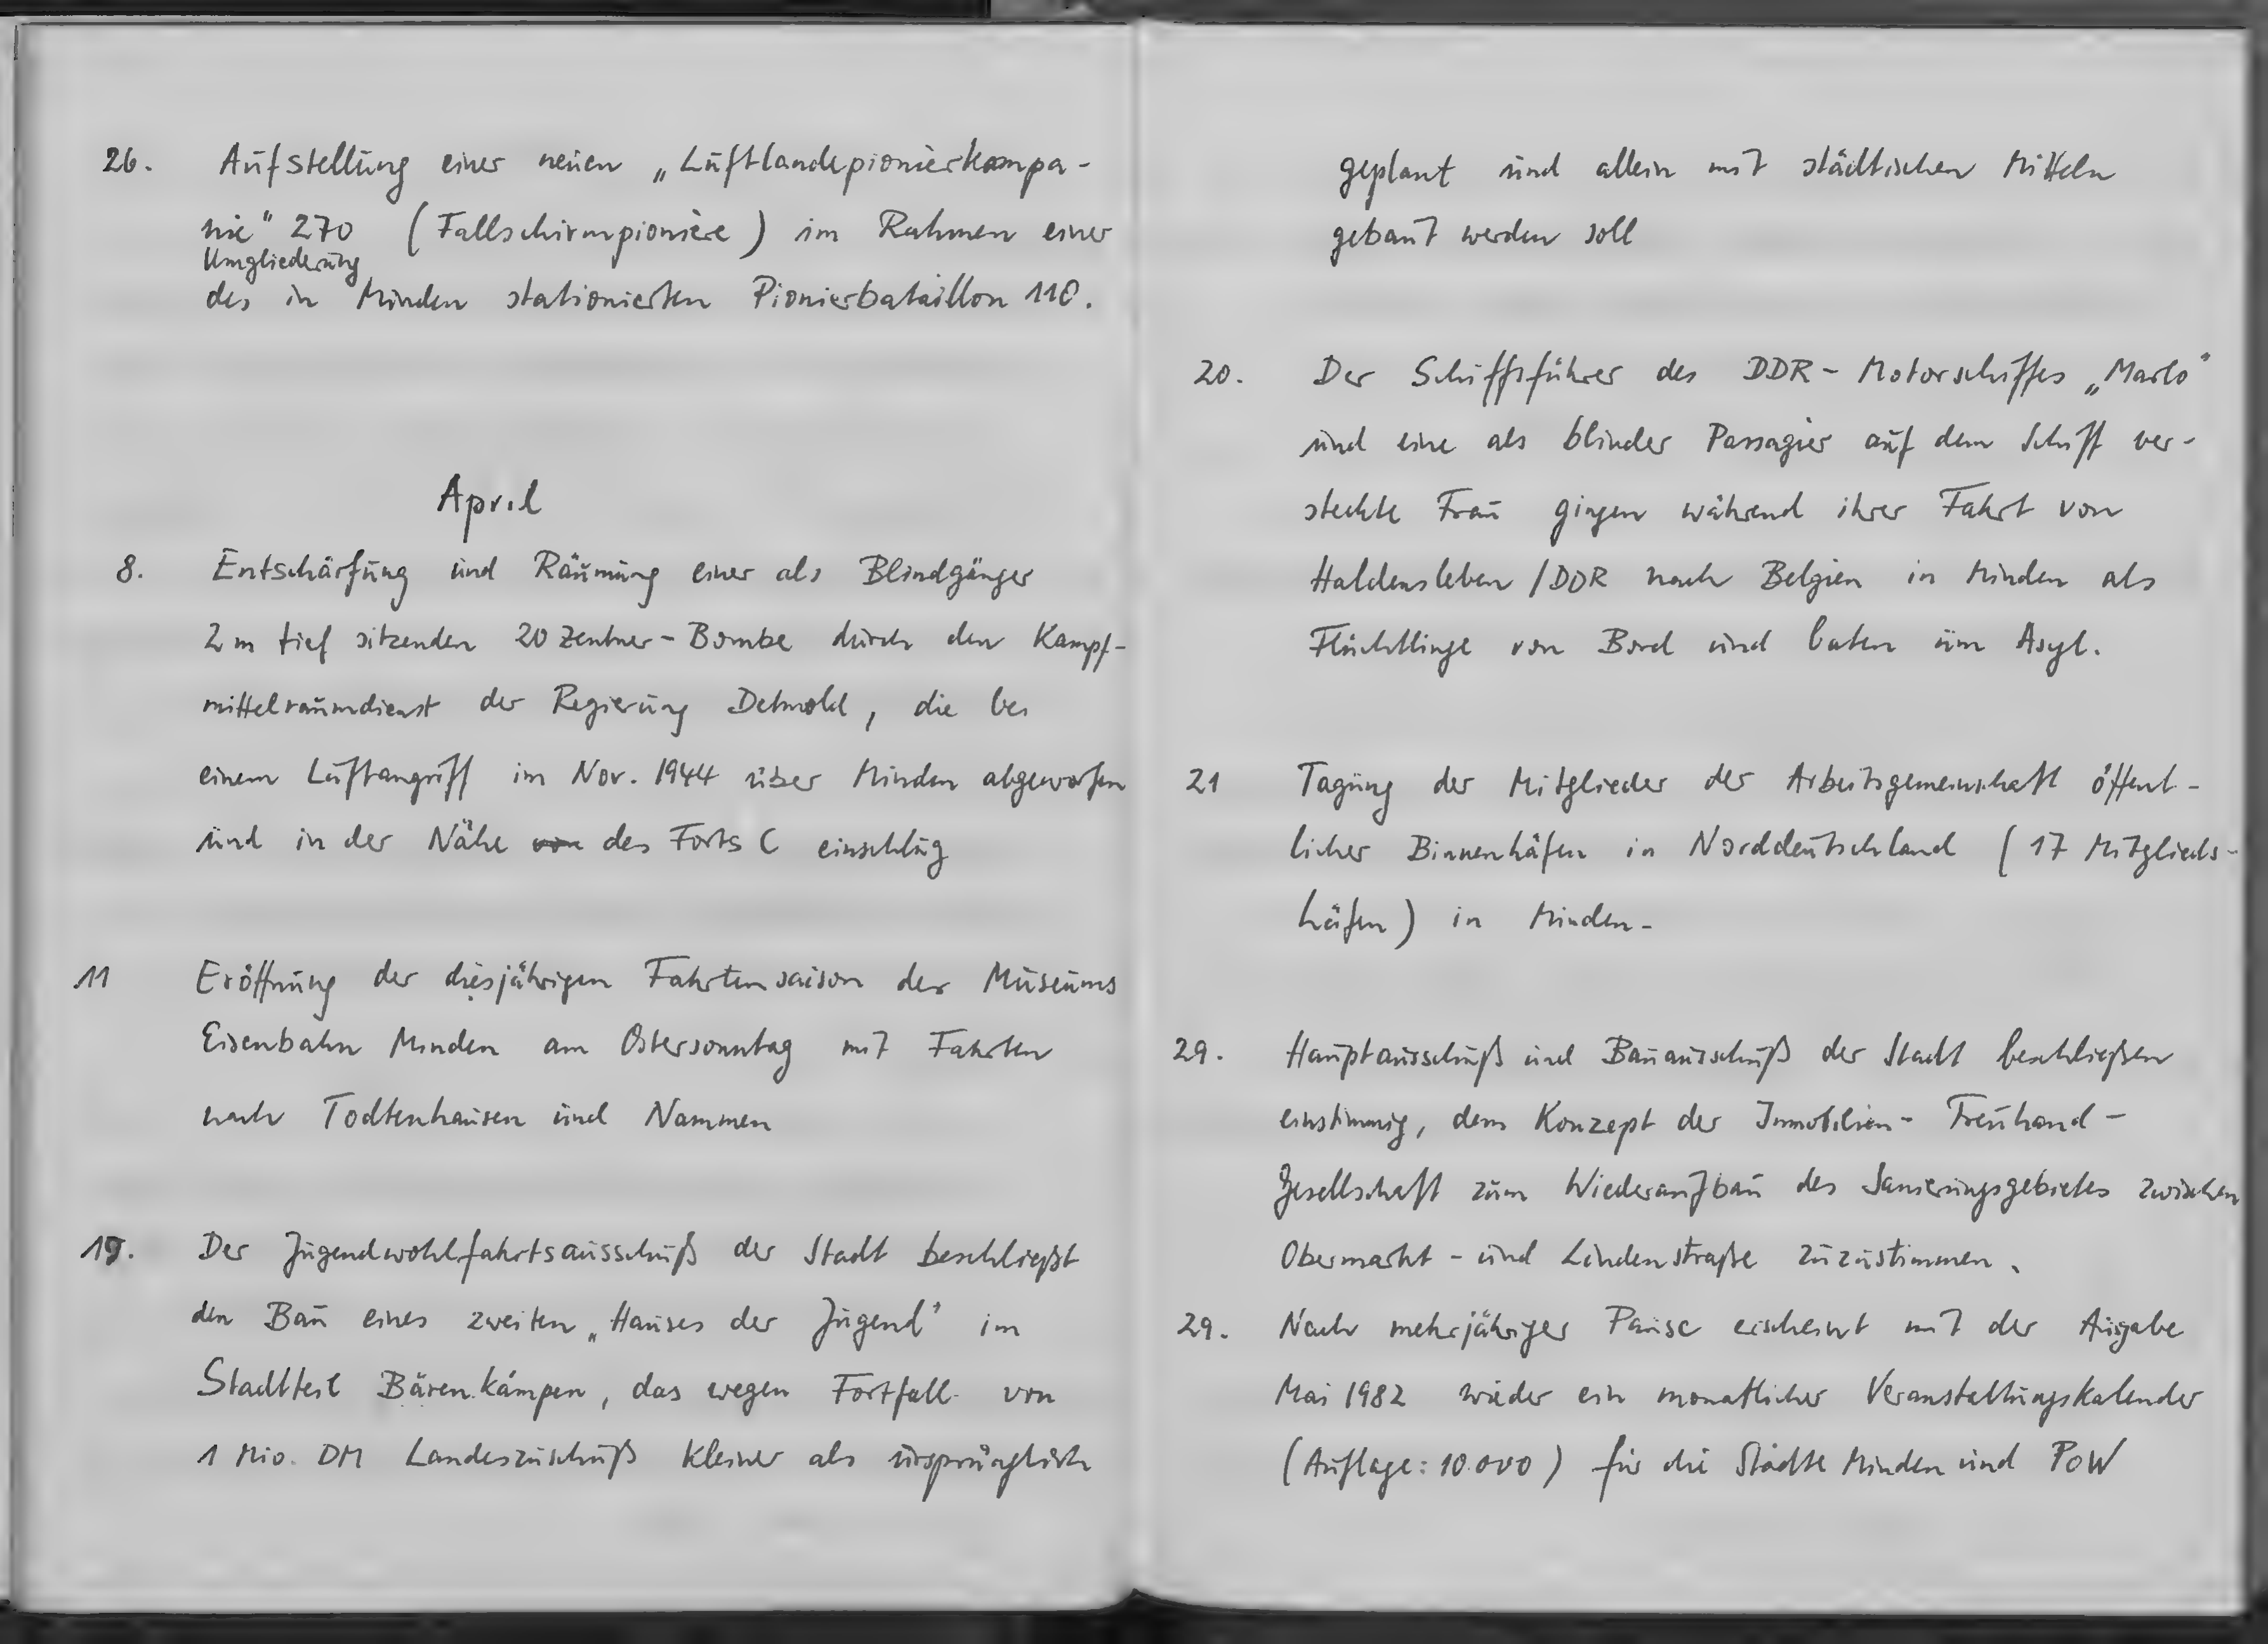 26. Aufstellung einer neuen „Luftlandepionierkompa-
nie" 270 (Fallschirmpioniere) im Rahmen einer
Umgliederung
des in Minden stationierten Pionierbataillon 110.
April
8. Entschärfung und Räumung einer als Blindgänger
2 m tief sitzenden 20 Zentner-Bombe durch den Kampf-
mittelräumdienst der Regierung Detmold, die bei
einem Luftangriff im Nov. 1944 über Minden abgeworfen
und in der Nähe von des Forts C einschlug
11 Eröffnung der diesjährigen Fahrtensaison der Museums
Eisenbahn Minden am Ostersonntag mit Fahrten
nach Todtenhausen und Nammen
19. Der Jugendwohlfahrtsausschuß der Stadt beschließt
den Bau eines zweiten „Hauses der Jugend" im
Stadtteil Bärenkämpen, das wegen Fortfall von
1 Mio. DM Landeszuschuß kleiner als ursprünglich
geplant und allein mit städtischen Mitteln
gebaut werden soll
20. Der Schiffsführer des DDR-Motorschiffes „Marlo"
und eine als blinder Passagier auf dem Schiff ver-
steckte Frau gingen während ihrer Fahrt von
Haldensleben /DDR nach Belgien in Minden als
Flüchtlinge von Bord und baten um Asyl.
21 Tagung der Mitglieder der Arbeitsgemeinschaft öffent-
licher Binnenhäfen in Norddeutschland (17 Mitglieds-
häfen) in Minden.
29. Hauptausschuß und Bauausschuß der Stadt beschließen
einstimmig, dem Konzept der Immobilien-Treuhand-
Gesellschaft zum Wiederaufbau des Sanierungsgebietes zwischen
Obermarkt- und Lindenstraße zuzustimmen.
29. Nach mehrjähriger Pause erscheint mit der Ausgabe
Mai 1982 wieder ein monatlicher Veranstaltungskalender
(Auflage: 10.000) für die Städte Minden und PoW